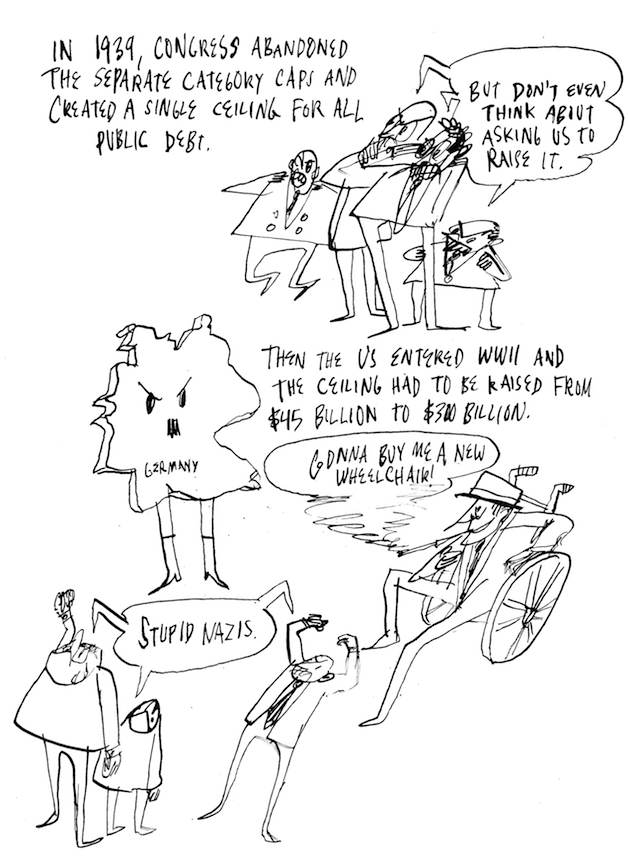 IN 1939, CONGRESS ABANDONED
THE SEPARATE CATEGORY CAPS AND
CREATED A SINGLE CEILING FOR ALL
PUBLIC DEBT.
BUT DON'T EVEN
THINK ABOUT
ASKING US TO
RAISE IT.
THEN THE US ENTERED WWII AND
THE CEILING HAD TO BE RAISED FROM
$45 BILLION TO $300 BILLION.
GERMANY
GONNA BUY ME A NEW
WHEELCHAIR!
STUPID NAZIS.